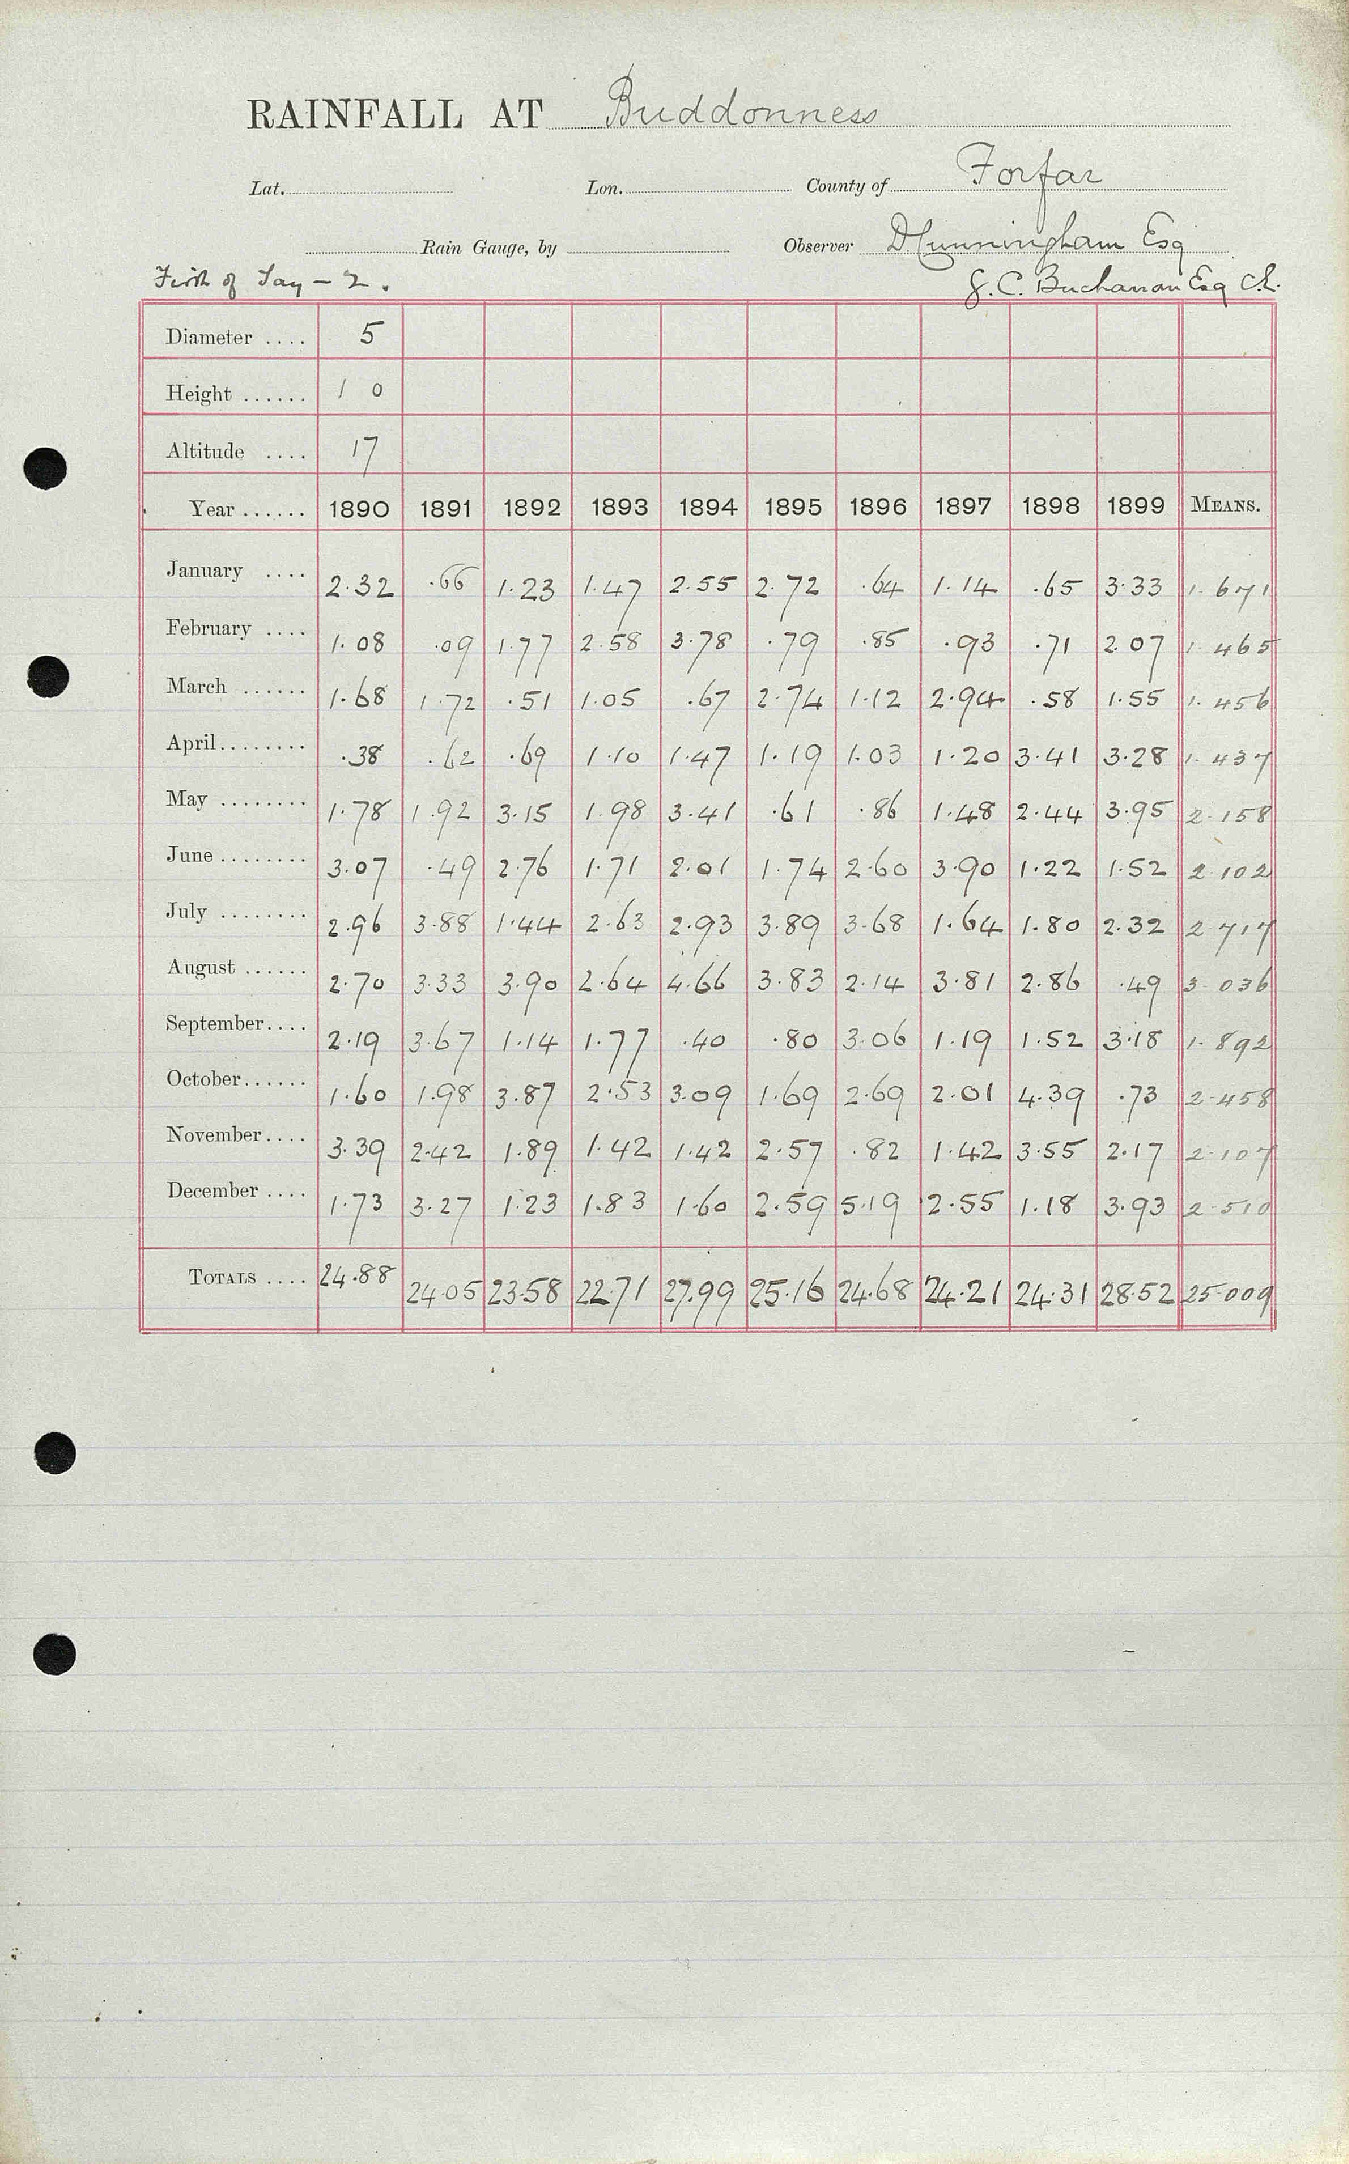 RAINFALL AT Buddonness
Lat. Lon. County of Forfar
Rain Gauge, by Observer D Cunningham Esq
Firth of Tay – 2. J. C. Buchanan Esq C.E.
Diameter .... 5
Height ...... 1 0
Altitude .... 17
Year ...... 1890 1891 1892 1893 1894 1895 1896 1897 1898 1899 MEANS.
January .... 2.32 .66 1.23 1.47 2.55 2.72 .64 1.14 .65 3.33 1.671
February .... 1.08 .09 1.77 2.58 3.78 .79 .85 .93 .71 2.07 1.465
March ...... 1.68 1.72 .51 1.05 .67 2.74 1.12 2.94 .58 1.55 1.456
April ........ .38 .62 .69 1.10 1.47 1.19 1.03 1.20 3.41 3.28 1.437
May ........ 1.78 1.92 3.15 1.98 3.41 .61 .86 1.48 2.44 3.95 2.158
June ........ 3.07 .49 2.76 1.71 2.01 1.74 2.60 3.90 1.22 1.52 2.102
July ........ 2.96 3.88 1.44 2.63 2.93 3.89 3.68 1.64 1.80 2.32 2.717
August ...... 2.70 3.33 3.90 2.64 4.66 3.83 2.14 3.81 2.86 .49 3.036
September .... 2.19 3.67 1.14 1.77 .40 .80 3.06 1.19 1.52 3.18 1.892
October ...... 1.60 1.98 3.87 2.53 3.09 1.69 2.69 2.01 4.39 .73 2.458
November .... 3.39 2.42 1.89 1.42 1.42 2.57 .82 1.42 3.55 2.17 2.107
December .... 1.73 3.27 1.23 1.83 1.60 2.59 5.19 2.55 1.18 3.93 2.510
TOTALS .... 24.88 24.05 23.58 22.71 27.99 25.16 24.68 24.21 24.31 28.52 25.009